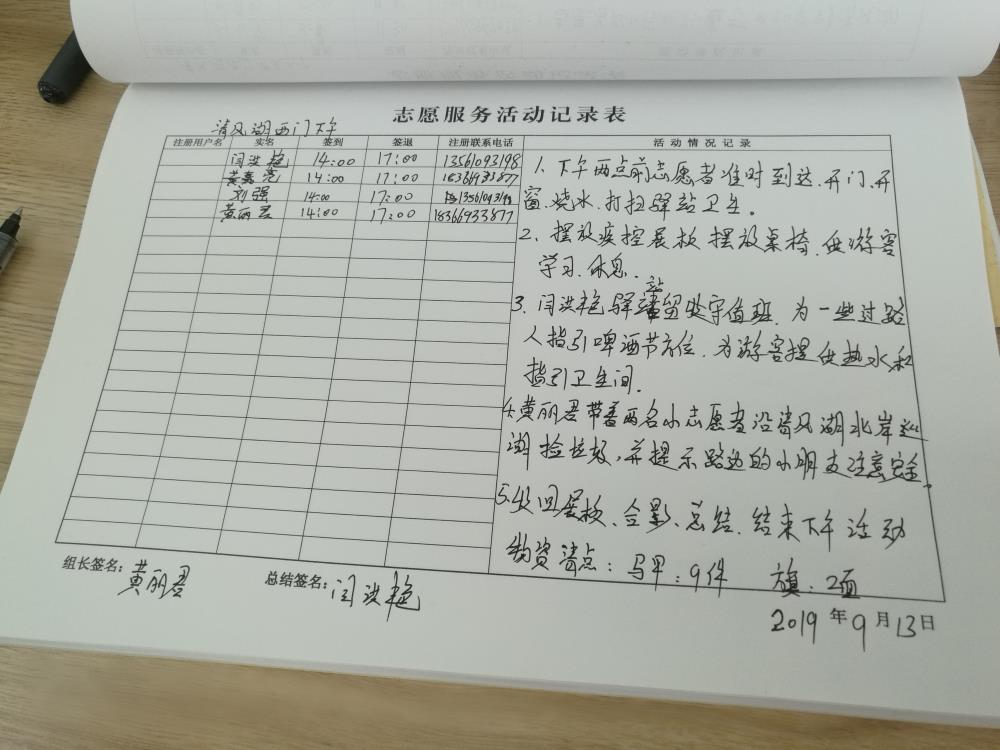 志愿服务活动记录表
清风湖西门下午
注册用户名 实名 签到 签退 注册联系电话 活动情况记录
闫洪艳 14:00 17:00 13561093198
14:00 17:00 18366933877
刘强 14:00 17:00
黄丽君 14:00 17:00 18366933877
1、下午两点前志愿者准时到达、开门、开
窗、烧水、打扫驿站卫生。
2、摆放疾控展板、摆放桌椅、供游客
学习、休息.
3、闫洪艳驿站留守值班.为一些过路
人指引啤酒节方位.为游客提供热水和
指引卫生间.
4、黄丽君带着两名小志愿者沿清风湖北岸巡
湖捡垃圾,并提示路边的小朋友注意安全。
5、收回展板、合影、总结.结束下午活动
物资清点:马甲:9件 旗:2面
组长签名:黄丽君 总结签名:闫洪艳
2019年9月13日